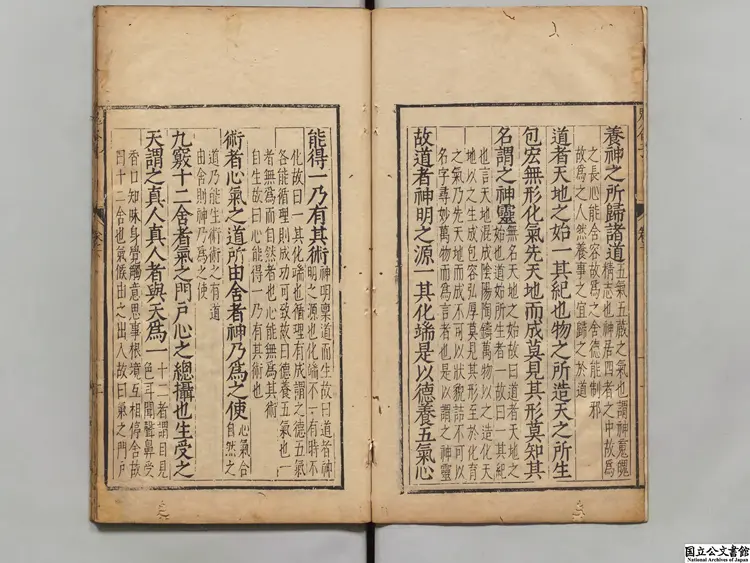 養神之所歸諸道
五氣五藏之氣也謂神魂魄
精志也神居四者之中故為
之長心能舍容故為之舍德能制邪
故為之人然養事之宜歸之於道
道者天地之始一其紀也物之所造天之所生
包宏無形化氣先天地而成莫見其形莫知其
名謂之神靈
無名天地之始故曰道者天地之
始也道始所生者一故曰一其紀
也言天地混成陰陽陶鑄萬物以之造化天
地以之生成包容弘厚莫見其形至於化育
之氣乃先天地而成不可以狀貌詰不可以
名字尋妙萬物而為言者也是以謂之神靈
故道者神明之源一其化端是以德養五氣心
能得一乃有其術
神明稟道而生故曰道者神
明之源也化端不一有時不
化故曰一其化端也循理有成謂之德五氣
各能循理則成功可致故曰德養五氣也一
者無為而自然者也心能無為其術
自生故曰心能得一乃有其術也
術者心氣之道所由舍者神乃為之使
心氣合
自然之
道乃能生術術之有道
由舍則神乃為之使
九竅十二舍者氣之門戶心之總攝也生受之
天謂之真人真人者與天為一
十二者謂目見
色耳聞聲鼻受
香口知味身覺觸意思事根境互相停舍故
曰十二舍也氣候由之出入故曰氣之門戶
国立公文書館
National Archives of Japan